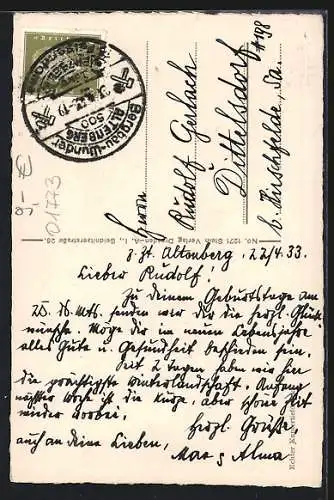 Bergbau-Wunder
ALTENBERG
500
Herrn
Rudolf Gerlach
Dittelsdorf
b. Hirschfelde, Sa.
No. 1271 Stark Verlag Dresden-A. 1, Seidnitzerstraße 26
z. Zt. Altenberg, 22/4.33.
Lieber Rudolf!
Zu deinem Geburtstage am
25. ds. Mts. senden wir dir die herzl. Glück-
wünsche. Möge dir im neuen Lebensjahre
alles Gute u. Gesundheit beschieden sein.
Seit 2 Tagen haben wir hier
die prächtigste Winterlandschaft. Anfang
nächster Woche ist die kurze, aber schöne Zeit
wieder vorbei.
Herzl. Grüße,
auch an deine Lieben,
Max & Alma
01773